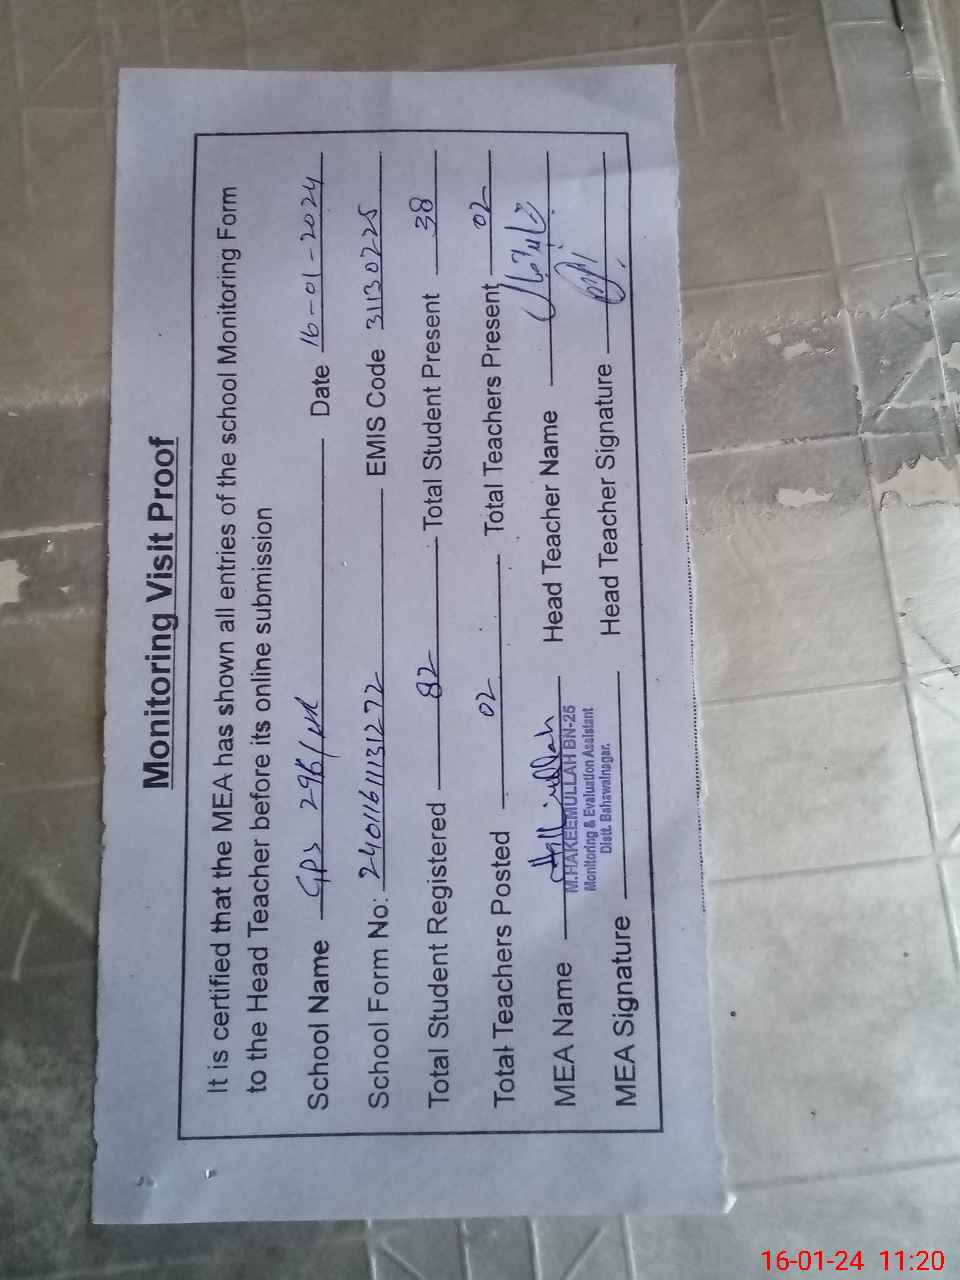 Monitoring Visit Proof
It is certified that the MEA has shown all entries of the school Monitoring Form
to the Head Teacher before its online submission
School Name GPS 296/HR Date 16-01-2024
School Form No: 240116111131272 EMIS Code 31130225
Total Student Registered 82 Total Student Present 38
Total Teachers Posted 02 Total Teachers Present 02
MEA Name Head Teacher Name
M.HAKEEMULLAH BN-25
Monitoring & Evaluation Assistant
Distt. Bahawalnagar.
MEA Signature Head Teacher Signature
16-01-24 11:20